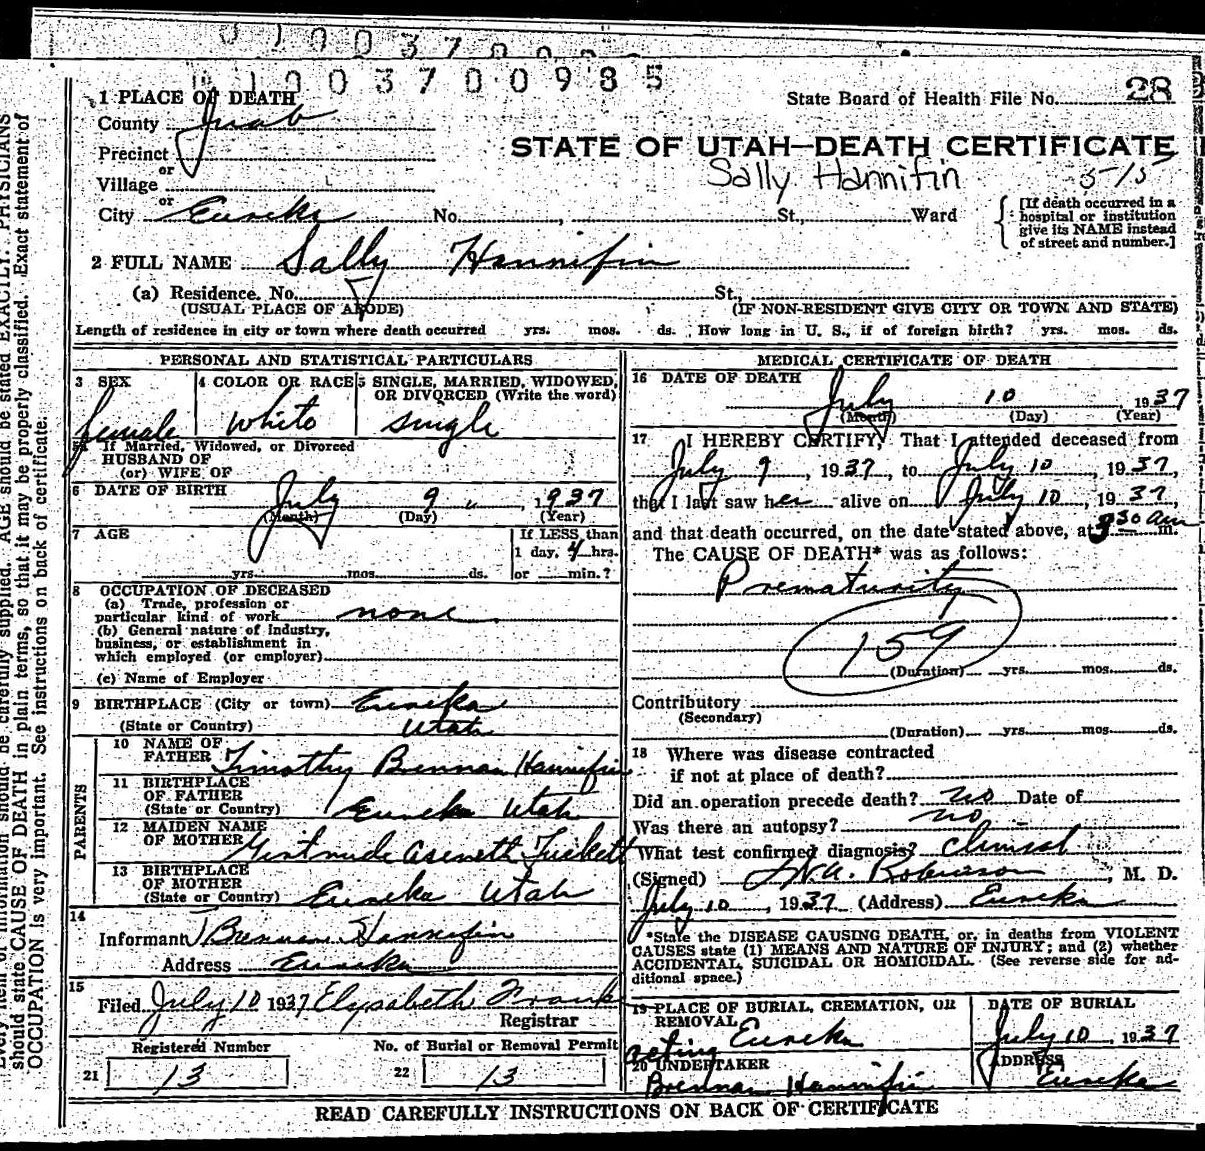 0100370098 5
State Board of Health File No. 28
1 PLACE OF DEATH
County Juab
STATE OF UTAH—DEATH CERTIFICATE
Precinct
or
Sally Hannifin 5-15
Village
or
City Eureka No. , St., Ward
[If death occurred in a
hospital or institution
give its NAME instead
of street and number.]
2 FULL NAME Sally Hannifin
(a) Residence. No. St.,
(USUAL PLACE OF ABODE) (IF NON-RESIDENT GIVE CITY OR TOWN AND STATE)
Length of residence in city or town where death occurred yrs. mos. ds. How long in U. S., if of foreign birth? yrs. mos. ds.
PERSONAL AND STATISTICAL PARTICULARS
3 SEX
female
4 COLOR OR RACE
white
5 SINGLE, MARRIED, WIDOWED,
OR DIVORCED (Write the word)
single
If Married, Widowed, or Divorced
HUSBAND OF
(or) WIFE OF
6 DATE OF BIRTH July 9 " 1937
(Month) (Day) (Year)
7 AGE
yrs. mos. ds.
If LESS than
1 day, 4 hrs.
or min.?
8 OCCUPATION OF DECEASED
(a) Trade, profession or
particular kind of work none
(b) General nature of Industry,
business, or establishment in
which employed (or employer)
(c) Name of Employer
9 BIRTHPLACE (City or town) Eureka
(State or Country) Utah
PARENTS
10 NAME OF
FATHER Timothy Brennan Hannifin
11 BIRTHPLACE
OF FATHER
(State or Country) Eureka Utah
12 MAIDEN NAME
OF MOTHER Gertrude Aseneth Tuckett
13 BIRTHPLACE
OF MOTHER
(State or Country) Eureka Utah
14
Informant T Brennan Hannifin
Address Eureka
15
Filed July 10 1937 Elysabeth Frank
Registrar
Registered Number No. of Burial or Removal Permit
21 13 22 13
MEDICAL CERTIFICATE OF DEATH
16 DATE OF DEATH
July 10 , 1937
(Month) (Day) (Year)
17 I HEREBY CERTIFY, That I attended deceased from
July 9 , 1937, to July 10 , 1937,
that I last saw her alive on July 10 , 1937,
and that death occurred, on the date stated above, at 330 am m.
The CAUSE OF DEATH* was as follows:
Prematurity
159
(Duration) yrs. mos. ds.
Contributory
(Secondary)
(Duration) yrs. mos. ds.
18 Where was disease contracted
if not at place of death?
Did an operation precede death? no Date of
Was there an autopsy? no
What test confirmed diagnosis? Clinical
(Signed) Robinson , M. D.
July 10 , 1937 (Address) Eureka
*State the DISEASE CAUSING DEATH, or, in deaths from VIOLENT
CAUSES state (1) MEANS AND NATURE OF INJURY; and (2) whether
ACCIDENTAL, SUICIDAL OR HOMICIDAL. (See reverse side for ad-
ditional space.)
19 PLACE OF BURIAL, CREMATION, OR
REMOVAL Eureka
DATE OF BURIAL
July 10 , 1937
acting
20 UNDERTAKER
Brennan Hannifin
ADDRESS
Eureka
READ CAREFULLY INSTRUCTIONS ON BACK OF CERTIFICATE
information should be carefully supplied. AGE should be stated EXACTLY. PHYSICIANS
should state CAUSE OF DEATH in plain terms, so that it may be properly classified. Exact statement of
OCCUPATION is very important. See instructions on back of certificate.